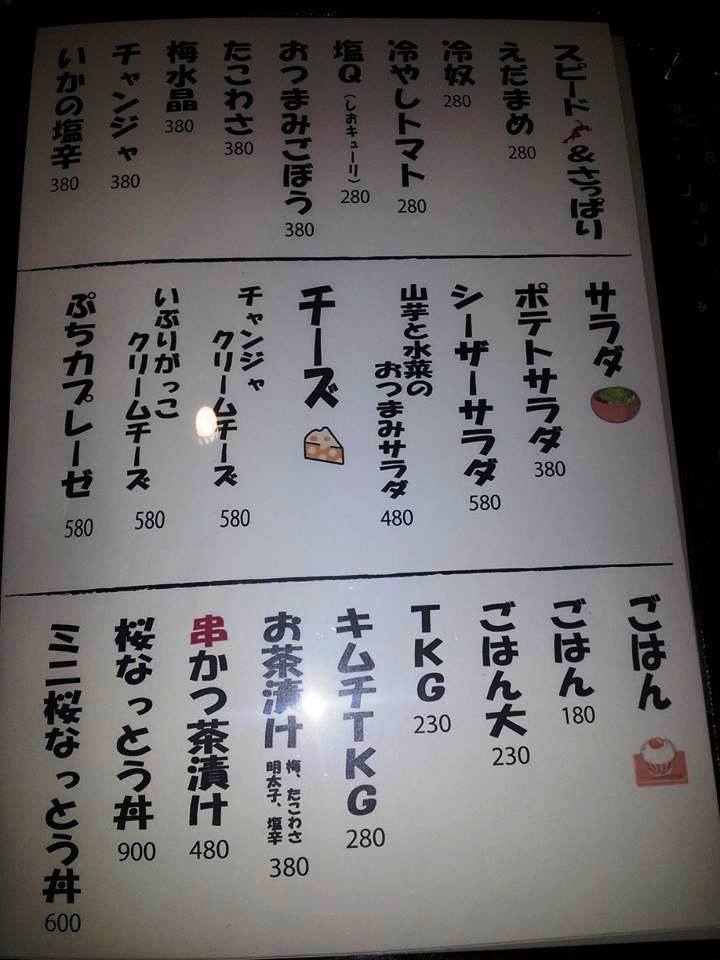 スピード&さっぱり
えだまめ 280
冷奴 280
冷やしトマト 280
塩Q(しおキューリ) 280
おつまみごぼう 380
たこわさ 380
梅水晶 380
チャンジャ 380
いかの塩辛 380
サラダ
ポテトサラダ 380
シーザーサラダ 580
山芋と水菜の
おつまみサラダ 480
チーズ
チャンジャ
クリームチーズ 580
いぶりがっこ
クリームチーズ 580
ぷちカプレーゼ 580
ごはん
ごはん 180
ごはん大 230
TKG 230
キムチTKG 280
お茶漬け 梅、たこわさ
明太子、塩辛 380
串かつ茶漬け 480
桜なっとう丼 900
ミニ桜なっとう丼 600